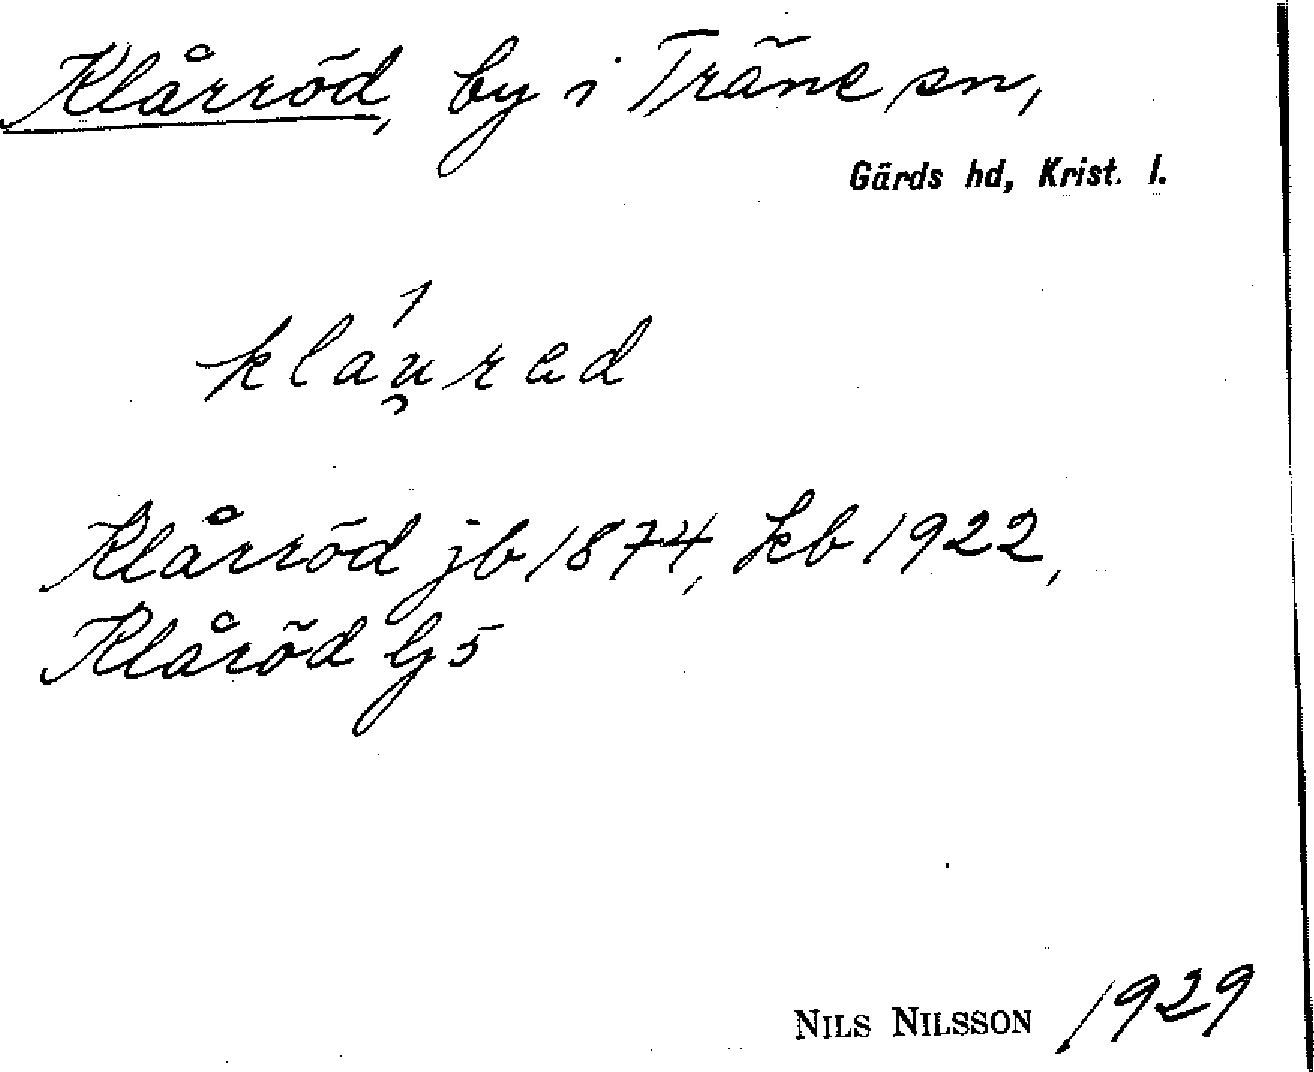 Klårröd, by i Träne sn,
Gärds hd, Krist. l.
kla̍u̯rad
Klårröd jb 1874, kb 1922,
Klåröd Gj 5
NILS NILSSON 1929